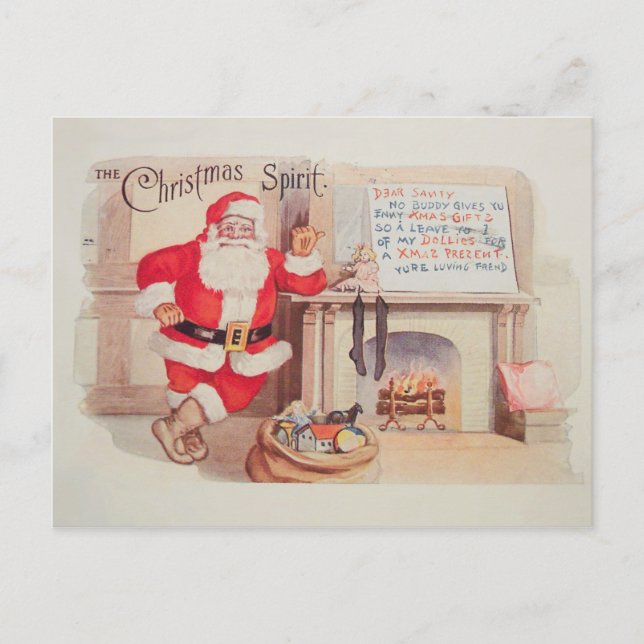 THE Christmas Spirit.
DEAR SANTY
NO BUDDY GIVES YU
ENNY XMAS GIFTS
SO I LEAVE YO 1
OF MY DOLLIES FOR
A XMAS PREZENT.
YURE LUVING FREND